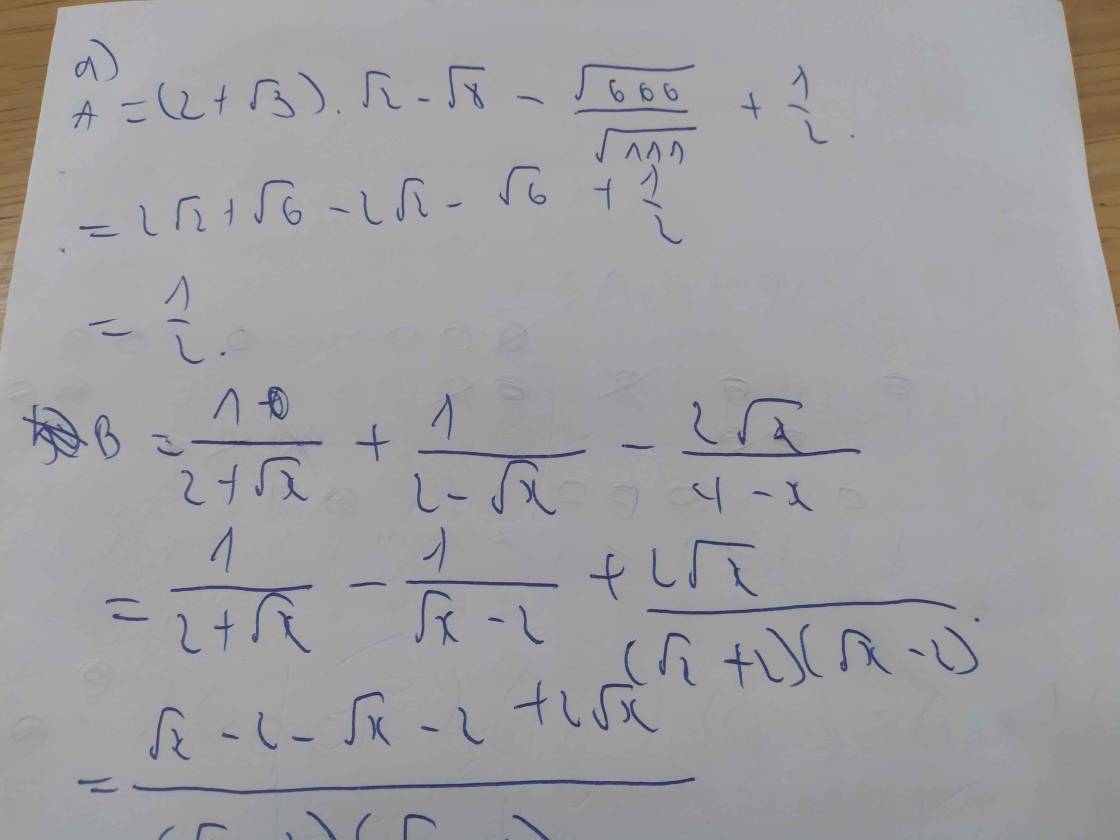 a)
A = (2 + √3) . √2 - √8 - √666 / √111 + 1/2.
= 2√2 + √6 - 2√2 - √6 + 1/2
= 1/2.
B = 1 / (2 + √x) + 1 / (2 - √x) - 2√x / (4 - x)
= 1 / (2 + √x) - 1 / (√x - 2) + 2√x / ((√x + 2)(√x - 2)).
= √x - 2 - √x - 2 + 2√x